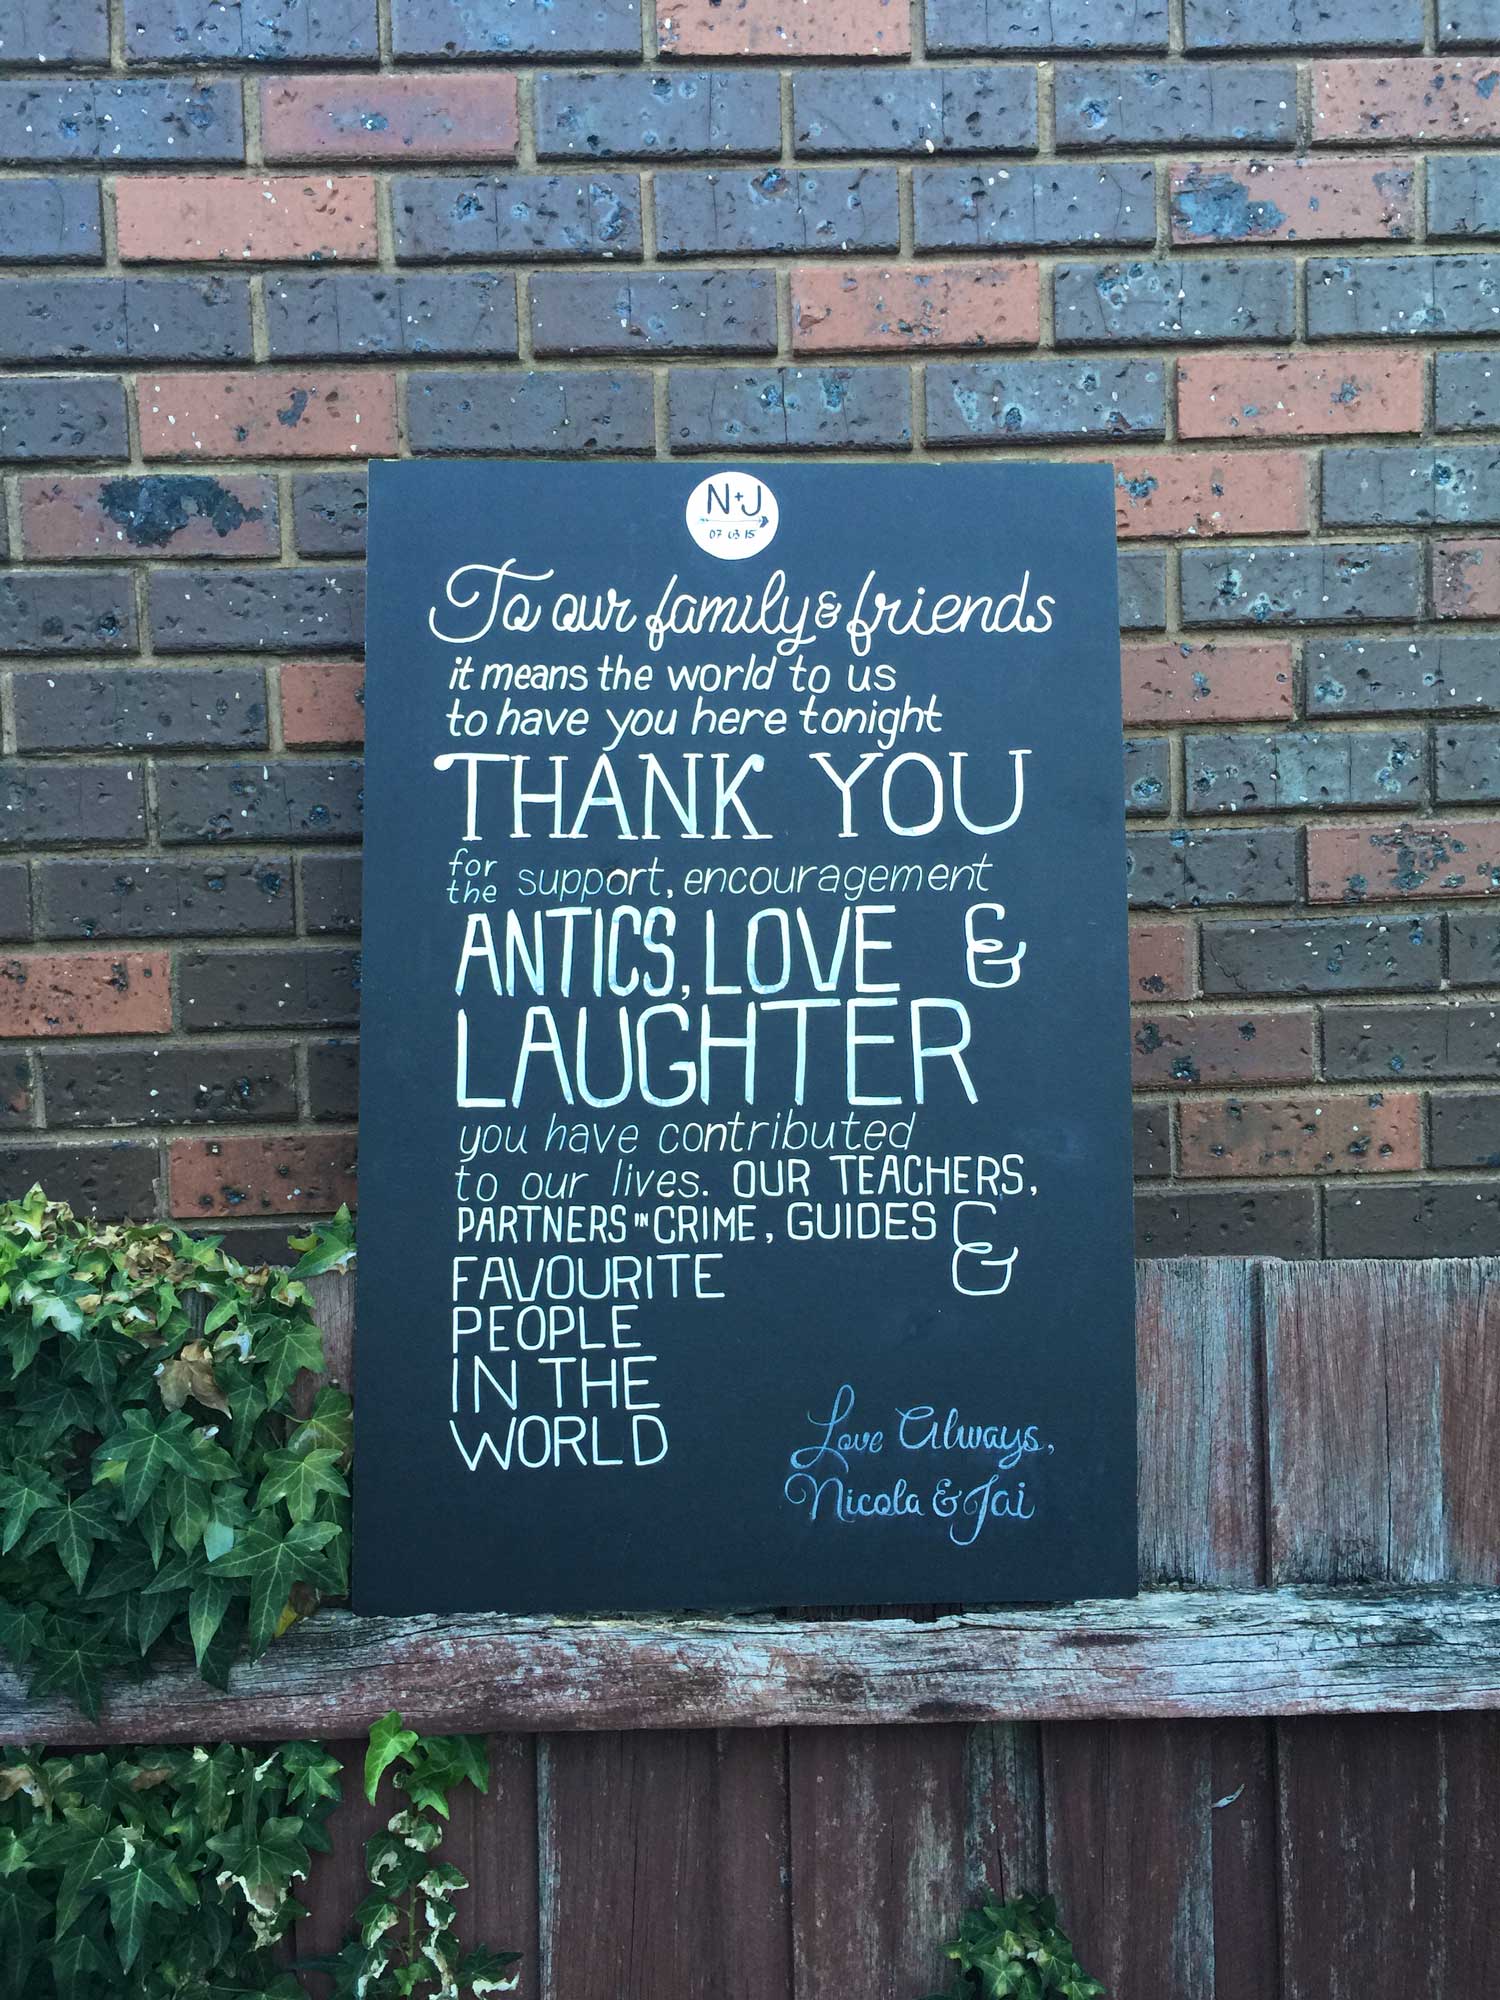 N+J
07 03 15
To our family & friends
it means the world to us
to have you here tonight
THANK YOU
for the support, encouragement
ANTICS, LOVE &
LAUGHTER
you have contributed
to our lives. OUR TEACHERS,
PARTNERS IN CRIME, GUIDES &
FAVOURITE
PEOPLE
IN THE
WORLD
Love Always,
Nicola & Jai